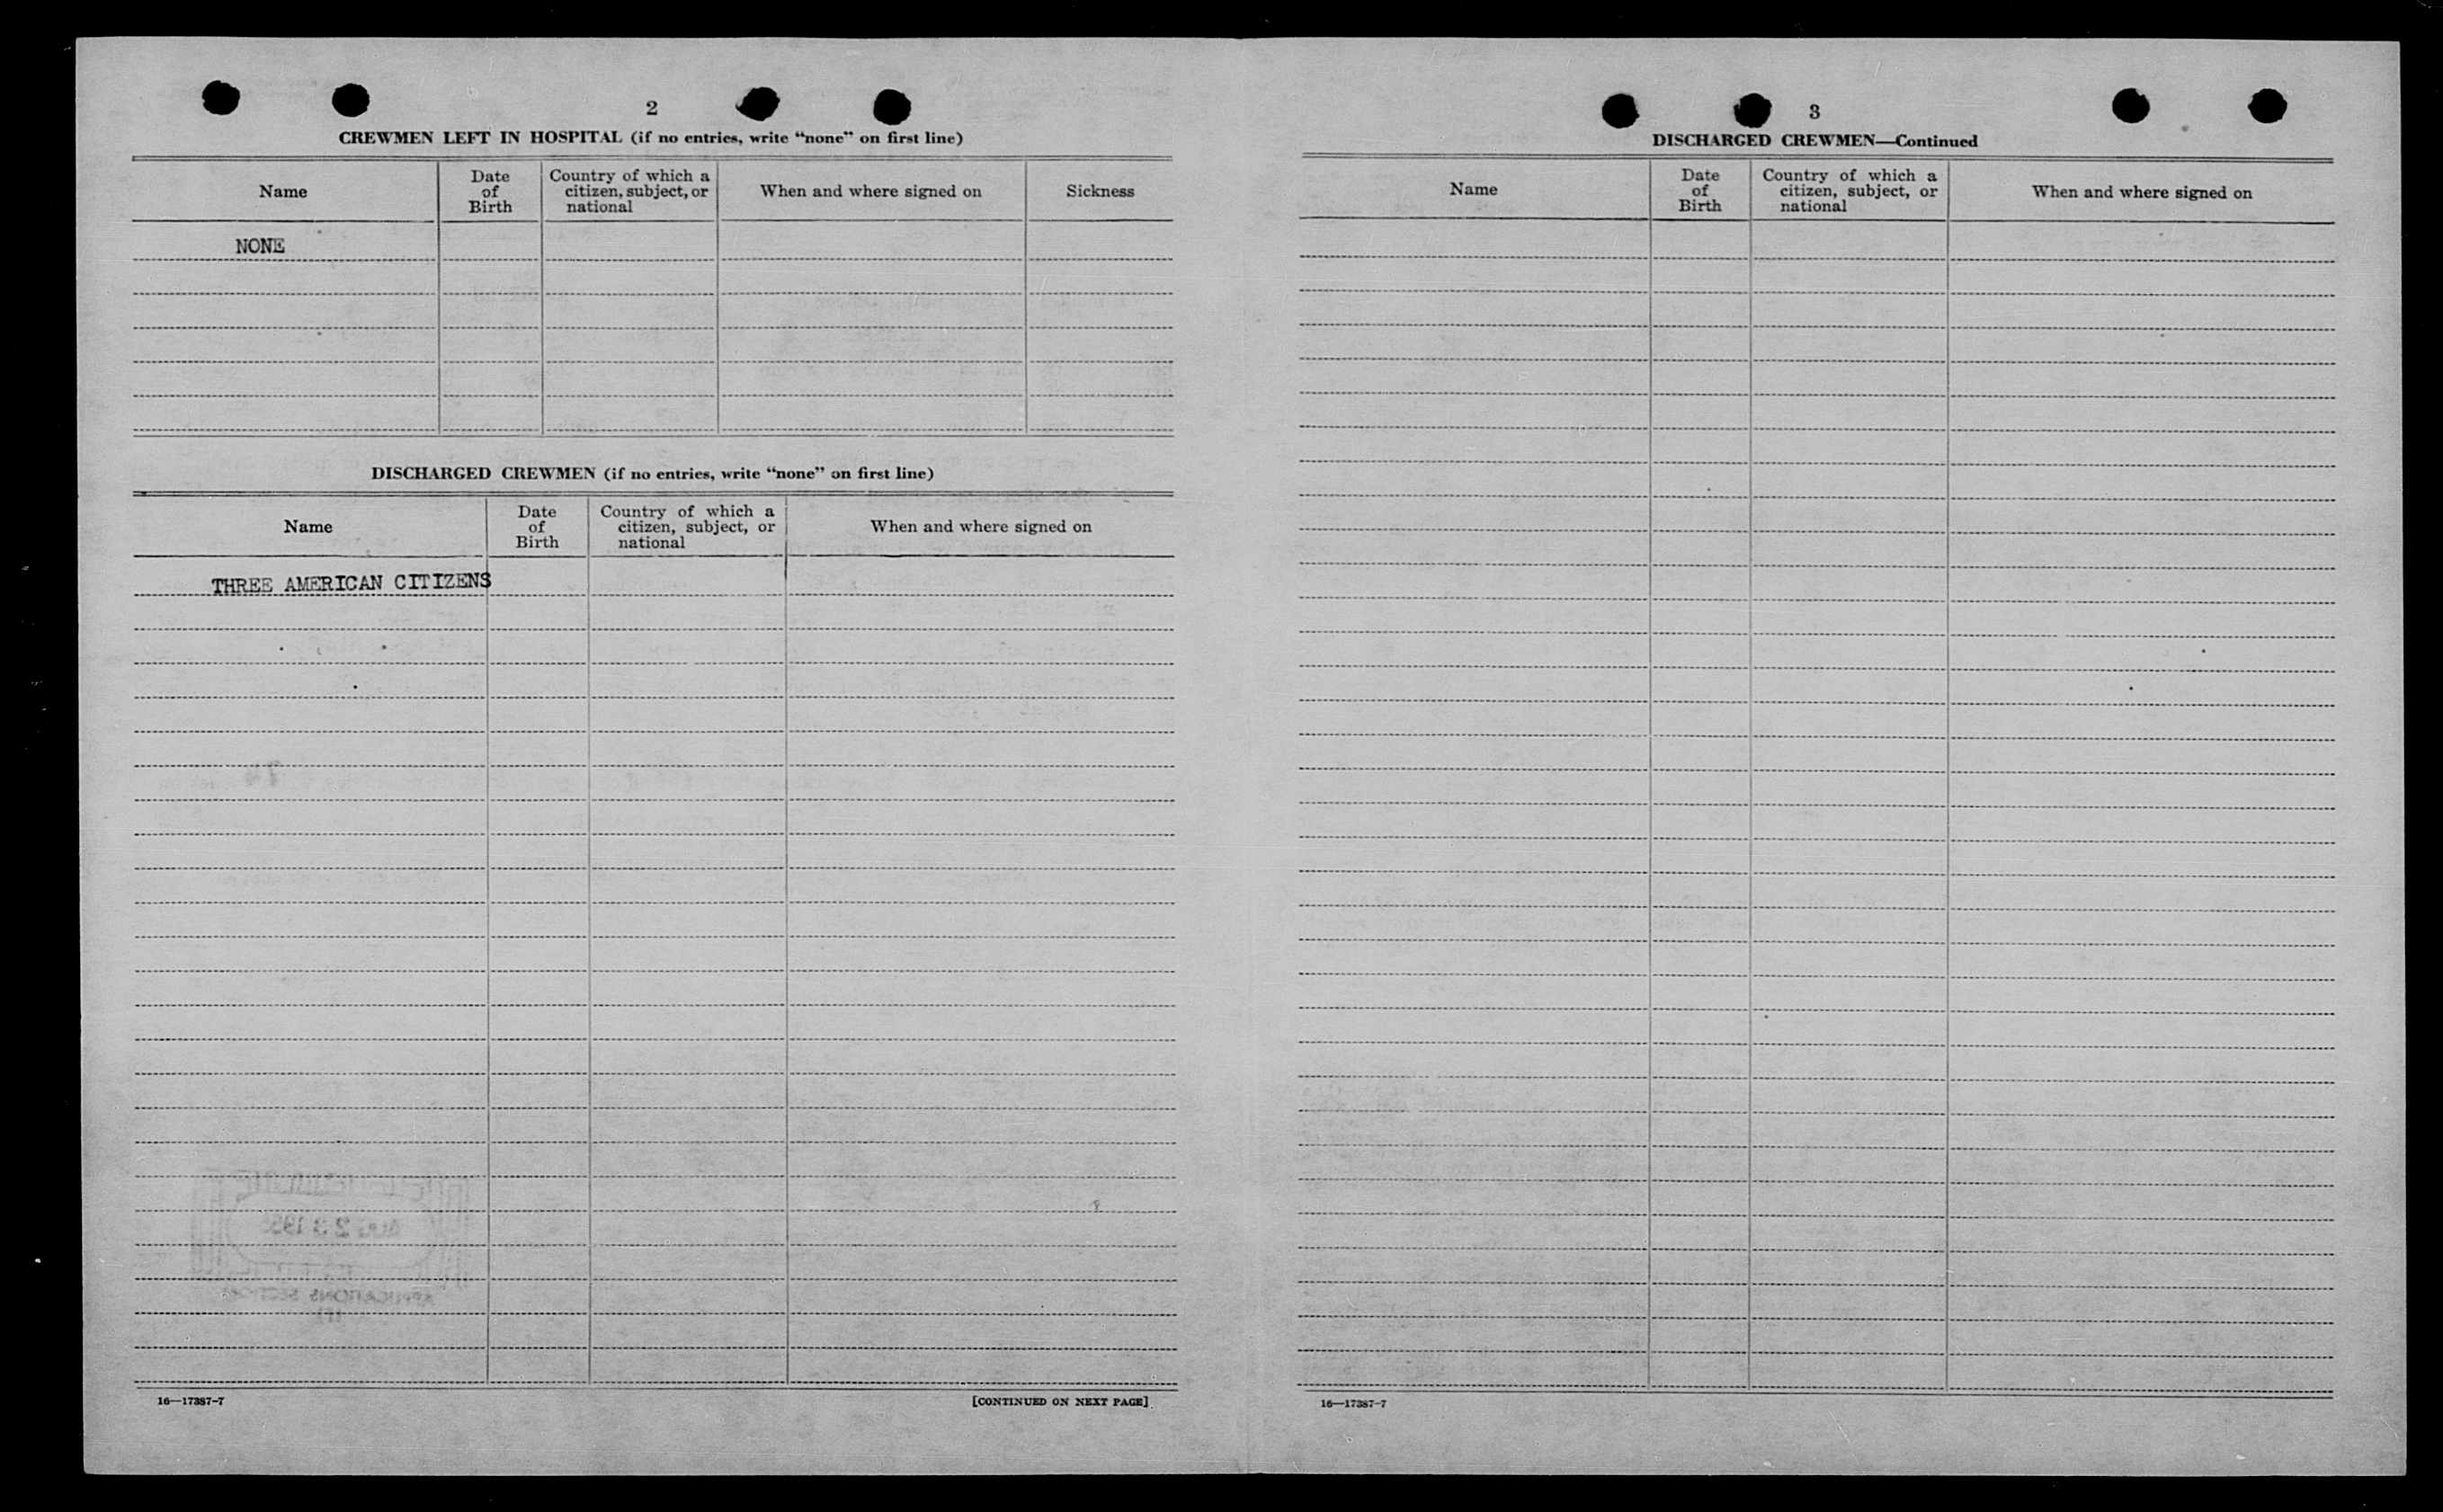 2
CREWMEN LEFT IN HOSPITAL (if no entries, write “none” on first line)
Name
Date of Birth
Country of which a citizen, subject, or national
When and where signed on
Sickness
NONE
DISCHARGED CREWMEN (if no entries, write “none” on first line)
Name
Date of Birth
Country of which a citizen, subject, or national
When and where signed on
THREE AMERICAN CITIZENS
APPLICATIONS SECTION
16—17387-7
[CONTINUED ON NEXT PAGE]
3
DISCHARGED CREWMEN—Continued
Name
Date of Birth
Country of which a citizen, subject, or national
When and where signed on
16—17387-7